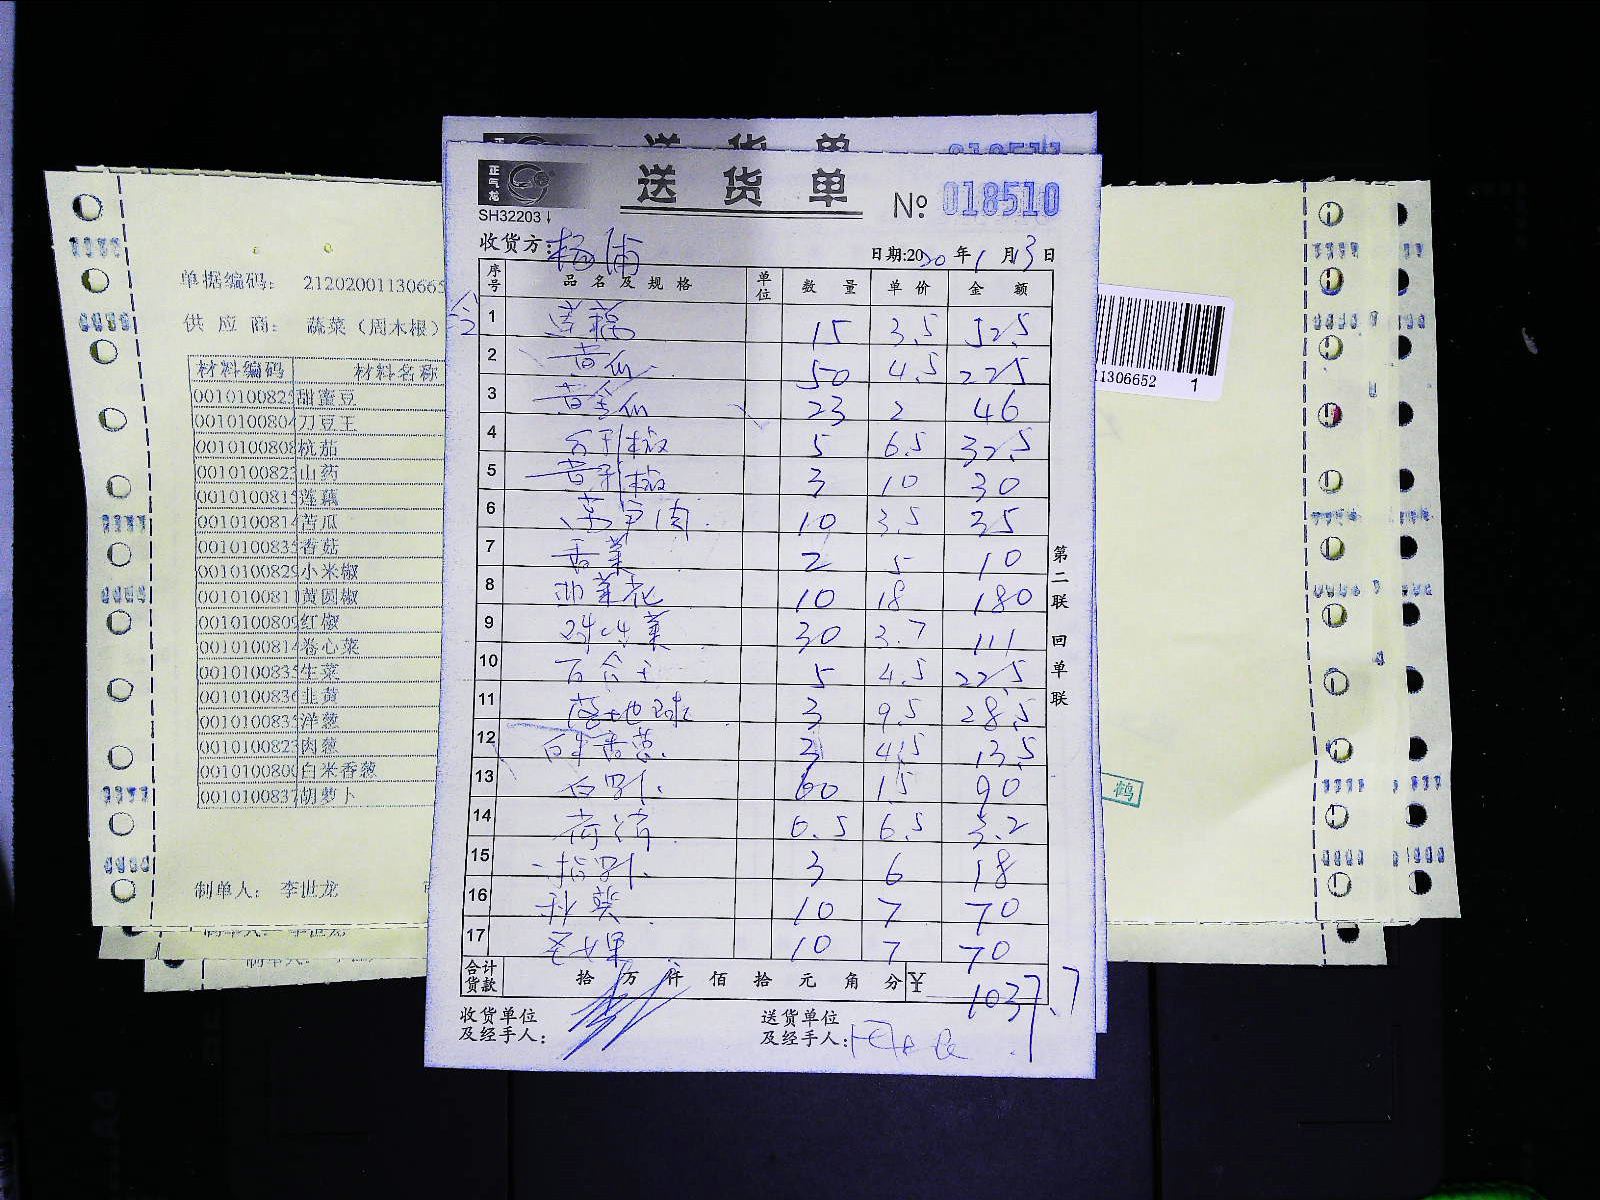 送货单
正气龙
送货单
SH32203
№ 018510
收货方: 杨浦
日期:2020年1月13日
序号 品名及规格 单位 数量 单价 金额
1 莲藕 15 3.5 52.5
2 黄瓜 50 4.5 225
3 黄金瓜 23 2 46
4 5 6.5 32.5
5 3 10 30
6 10 3.5 35
7 香菜 2 5 10
8 韭菜花 10 18 180
9 30 3.7 111
10 百合 5 4.5 22.5
11 3 9.5 28.5
12 白米香葱 3 4.5 13.5
13 白萝卜 60 1.5 90
14 0.5 6.5 3.2
15 3 6 18
16 秋葵 10 7 70
17 圣女果 10 7 70
合计货款 拾 万 仟 佰 拾 元 角 分 ¥ 1037.7
收货单位及经手人:
送货单位及经手人:
第二联 回单联
单据编码: 21202001130665
供应商: 蔬菜(周木根)
材料编码 材料名称
甜蜜豆
刀豆王
杭茄
山药
莲藕
苦瓜
香菇
小米椒
黄圆椒
红椒
卷心菜
生菜
韭黄
洋葱
肉葱
白米香葱
胡萝卜
制单人: 李世龙
制单人: 李世龙
制单人: 李世龙
11306652 1
鹤